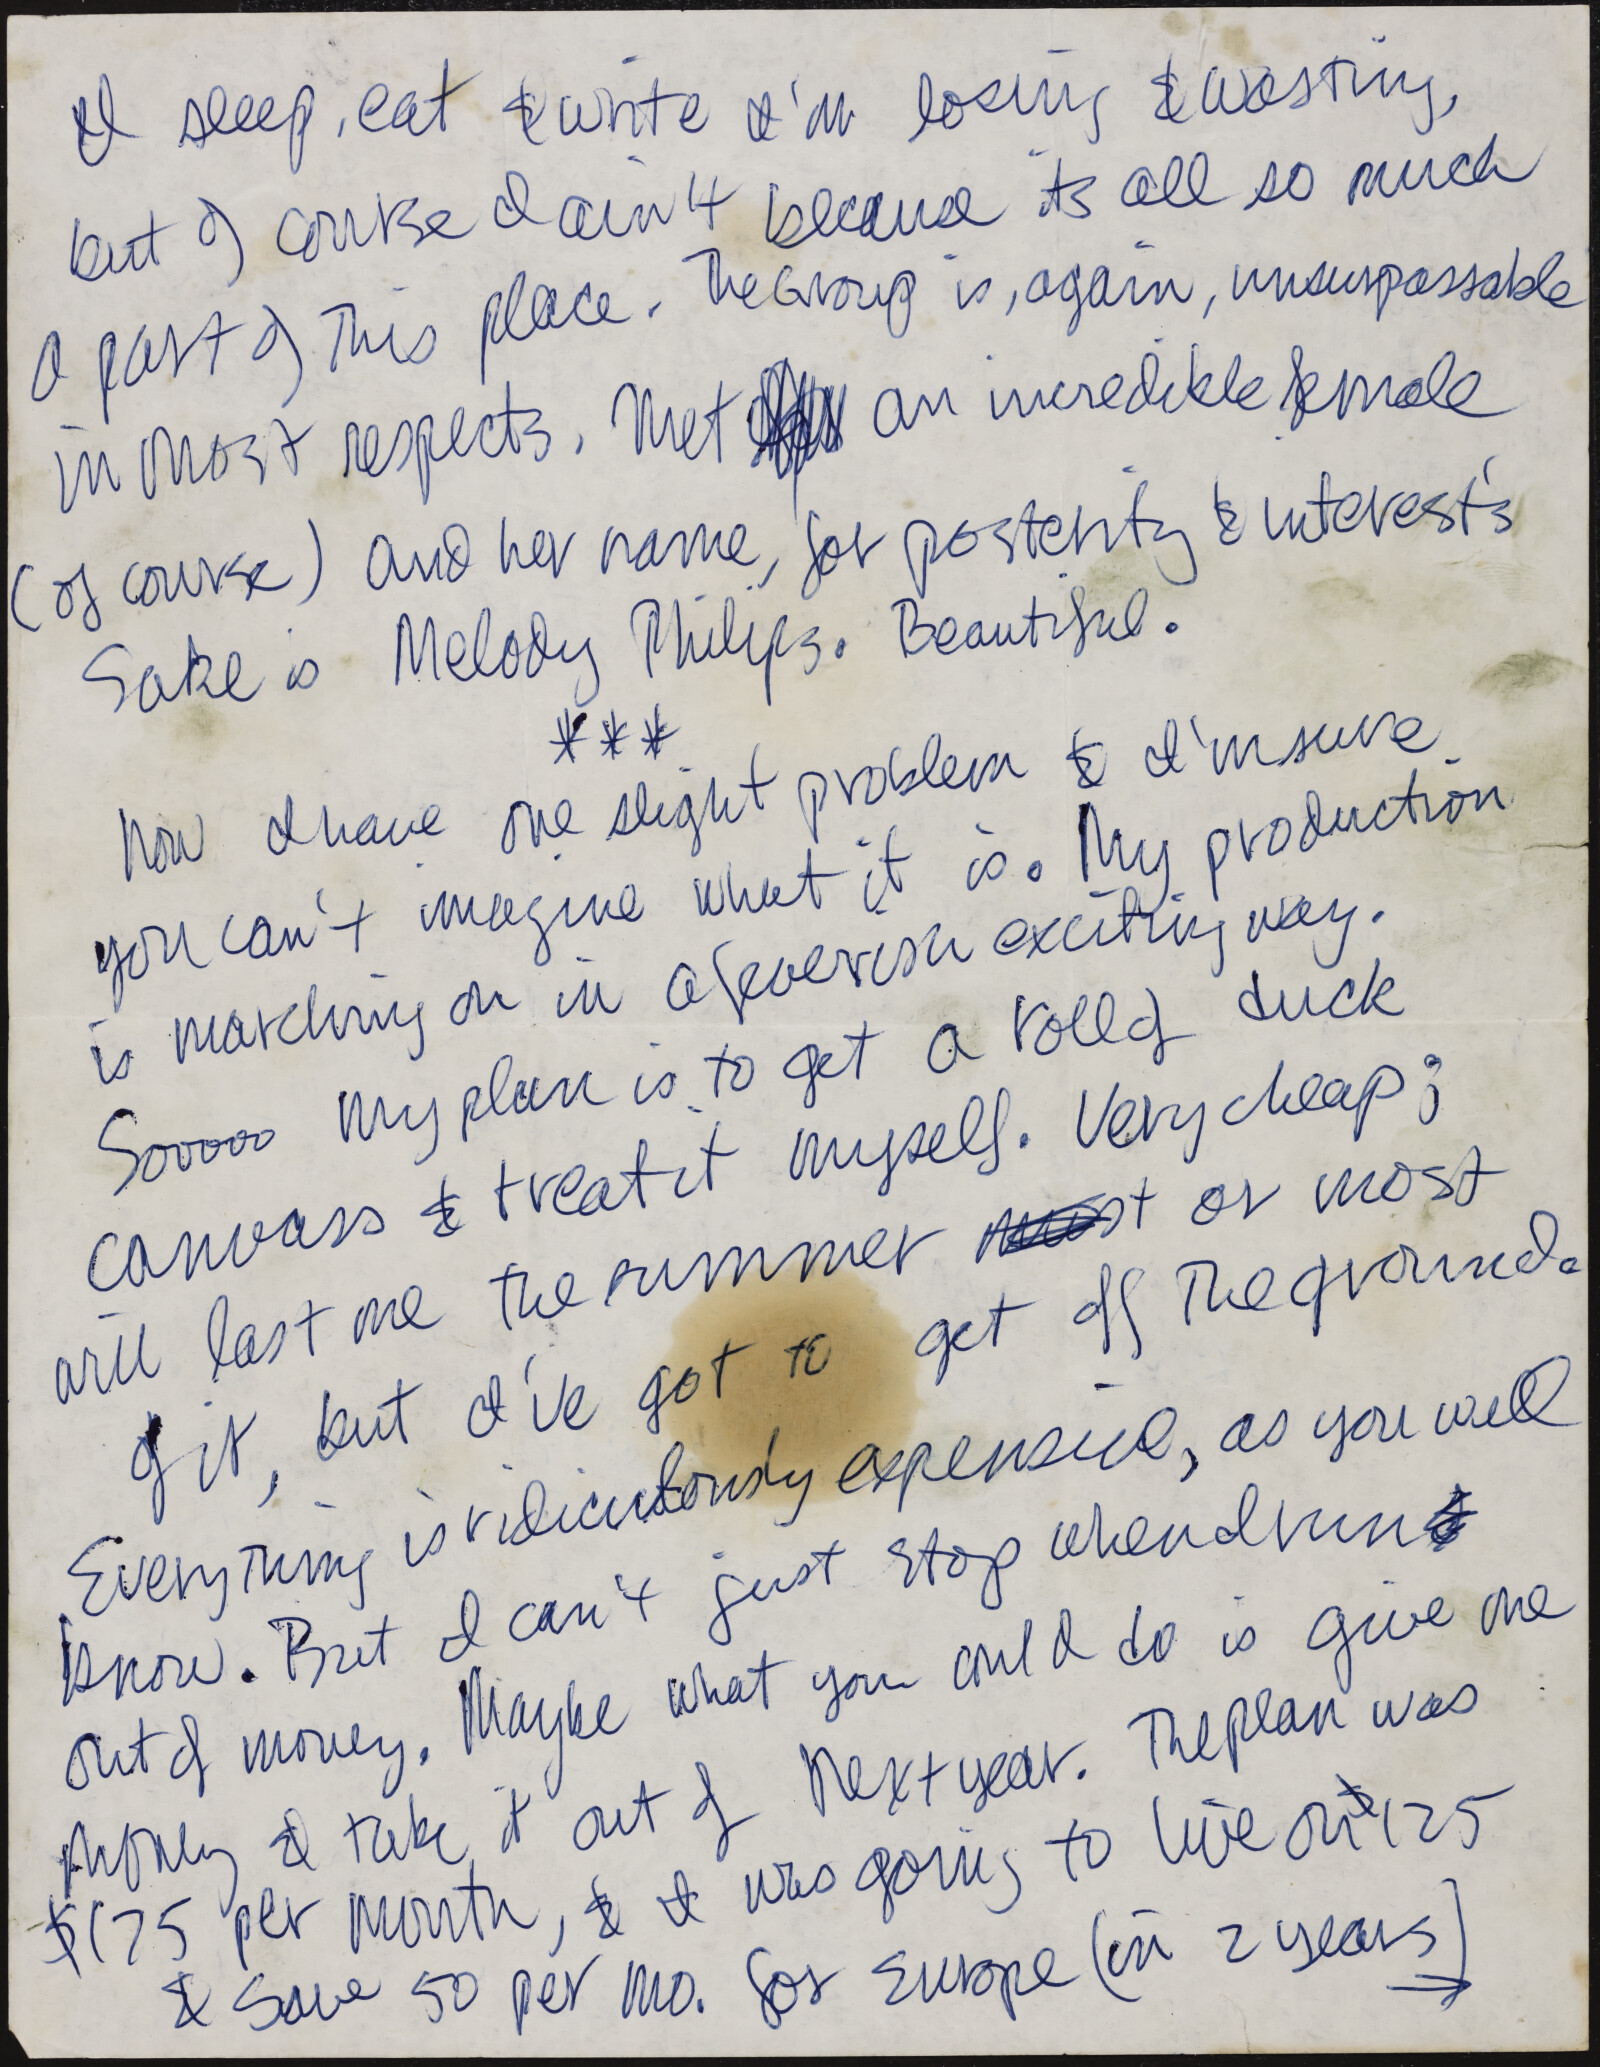 I sleep, eat & write I'm losing & wasting,
but of course I ain't because its all so much
a part of This place. The Group is, again, unsurpassable
in most respects. Met an incredible female
(of course) and her name, for posterity & interest's
Sake is Melody Philips. Beautiful.
***
Now I have one slight problem & I'm sure
you can't imagine what it is. My production
is marching on in a feverish exciting way.
Sooooo My plan is to get a roll of duck
canvass & treat it myself. Very cheap;
will last me the summer most or most
of it, but I've got to get off The ground.
Everything is ridiculously expensive, as you well
know. But I can't just stop when I run
out of money. Maybe what you could do is give me
money & take it out of Next year. The plan was
$175 per month, & I was going to live on $125
& Save 50 per mo. for Europe (in 2 years)